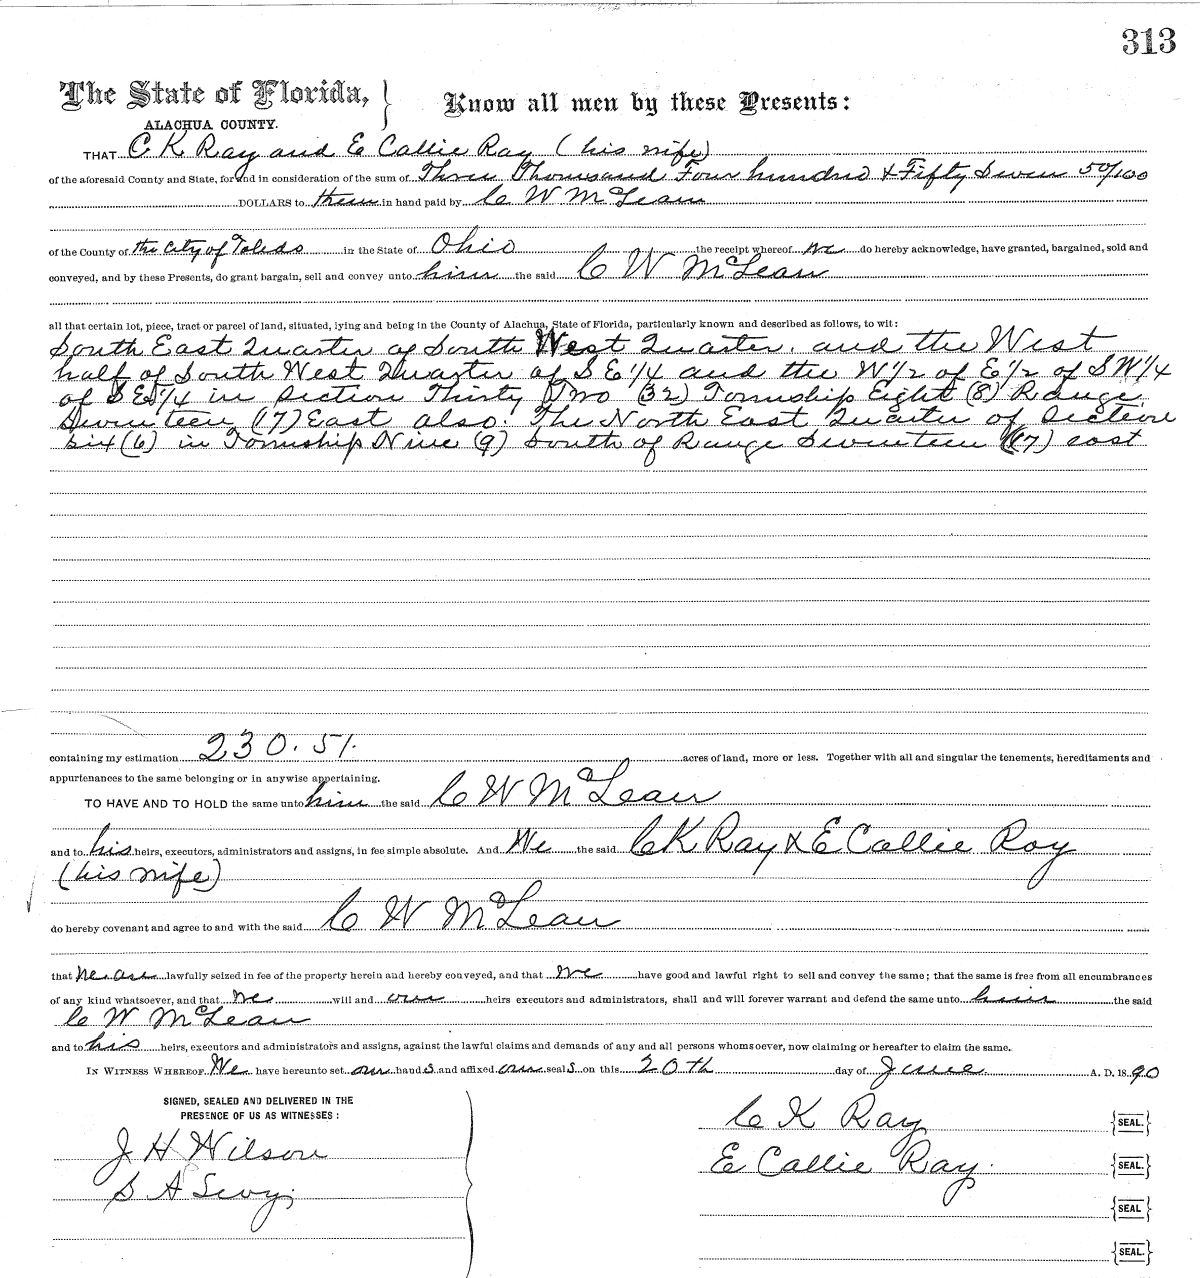 313
The State of Florida,
ALACHUA COUNTY.
Know all men by these Presents:
THAT C K Ray and E Callie Ray (his wife)
of the aforesaid County and State, for and in consideration of the sum of Three Thousand Four hundred & Fifty Seven 50/100
DOLLARS to them in hand paid by C W McLean
of the County of the City of Toledo in the State of Ohio the receipt whereof we do hereby acknowledge, have granted, bargained, sold and
conveyed, and by these Presents, do grant bargain, sell and convey unto him the said C W McLean
all that certain lot, piece, tract or parcel of land, situated, lying and being in the County of Alachua, State of Florida, particularly known and described as follows, to wit:
South East Quarter of South West Quarter. and the West
half of South West Quarter of S E 1/4 and the W 1/2 of E 1/2 of S W 1/4
of S E 1/4 in Section Thirty Two (32) Township Eight (8) Range
Seventeen (17) East also: The North East Quarter of Section
six (6) in Township Nine (9) South of Range Seventeen (17) east
containing my estimation 230.51. acres of land, more or less. Together with all and singular the tenements, hereditaments and
appurtenances to the same belonging or in anywise appertaining.
TO HAVE AND TO HOLD the same unto him the said C W McLean
and to his heirs, executors, administrators and assigns, in fee simple absolute. And We the said C K Ray & E Callie Ray
(his wife)
do hereby covenant and agree to and with the said C W McLean
that we are lawfully seized in fee of the property herein and hereby conveyed, and that we have good and lawful right to sell and convey the same; that the same is free from all encumbrances
of any kind whatsoever, and that we will and our heirs executors and administrators, shall and will forever warrant and defend the same unto him the said
C W McLean
and to his heirs, executors and administrators and assigns, against the lawful claims and demands of any and all persons whomsoever, now claiming or hereafter to claim the same.
IN WITNESS WHEREOF We have hereunto set our hands and affixed our seals on this 20th day of June A. D. 1890
SIGNED, SEALED AND DELIVERED IN THE
PRESENCE OF US AS WITNESSES:
J H Wilson
S A Sevy
C K Ray {SEAL.}
E Callie Ray. {SEAL.}
{SEAL}
{SEAL.}